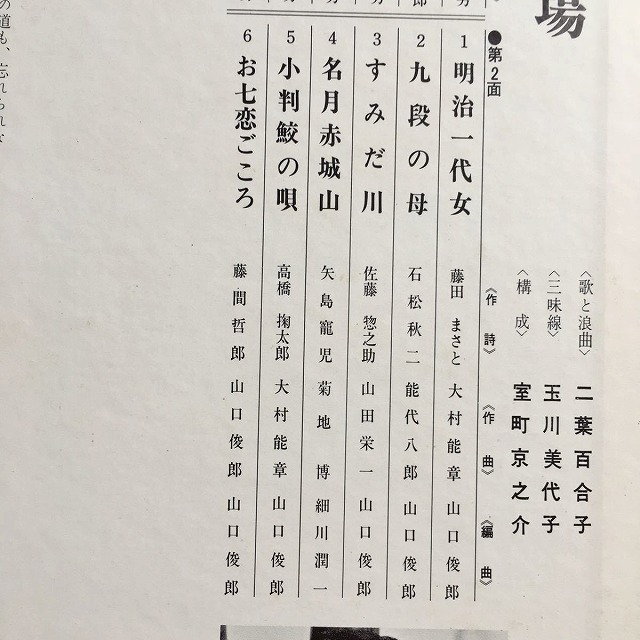 場
〈歌と浪曲〉 二葉百合子
〈三味線〉 玉川美代子
〈構成〉 室町京之介
●第2面 《作詩》 《作曲》 《編曲》
1 明治一代女 藤田まさと 大村能章 山口俊郎
2 九段の母 石松秋二 能代八郎 山口俊郎
3 すみだ川 佐藤惣之助 山田栄一 山口俊郎
4 名月赤城山 矢島寵児 菊地博 細川潤一
5 小判鮫の唄 高橋掬太郎 大村能章 山口俊郎
6 お七恋ごころ 藤間哲郎 山口俊郎 山口俊郎
の道も、忘れられな